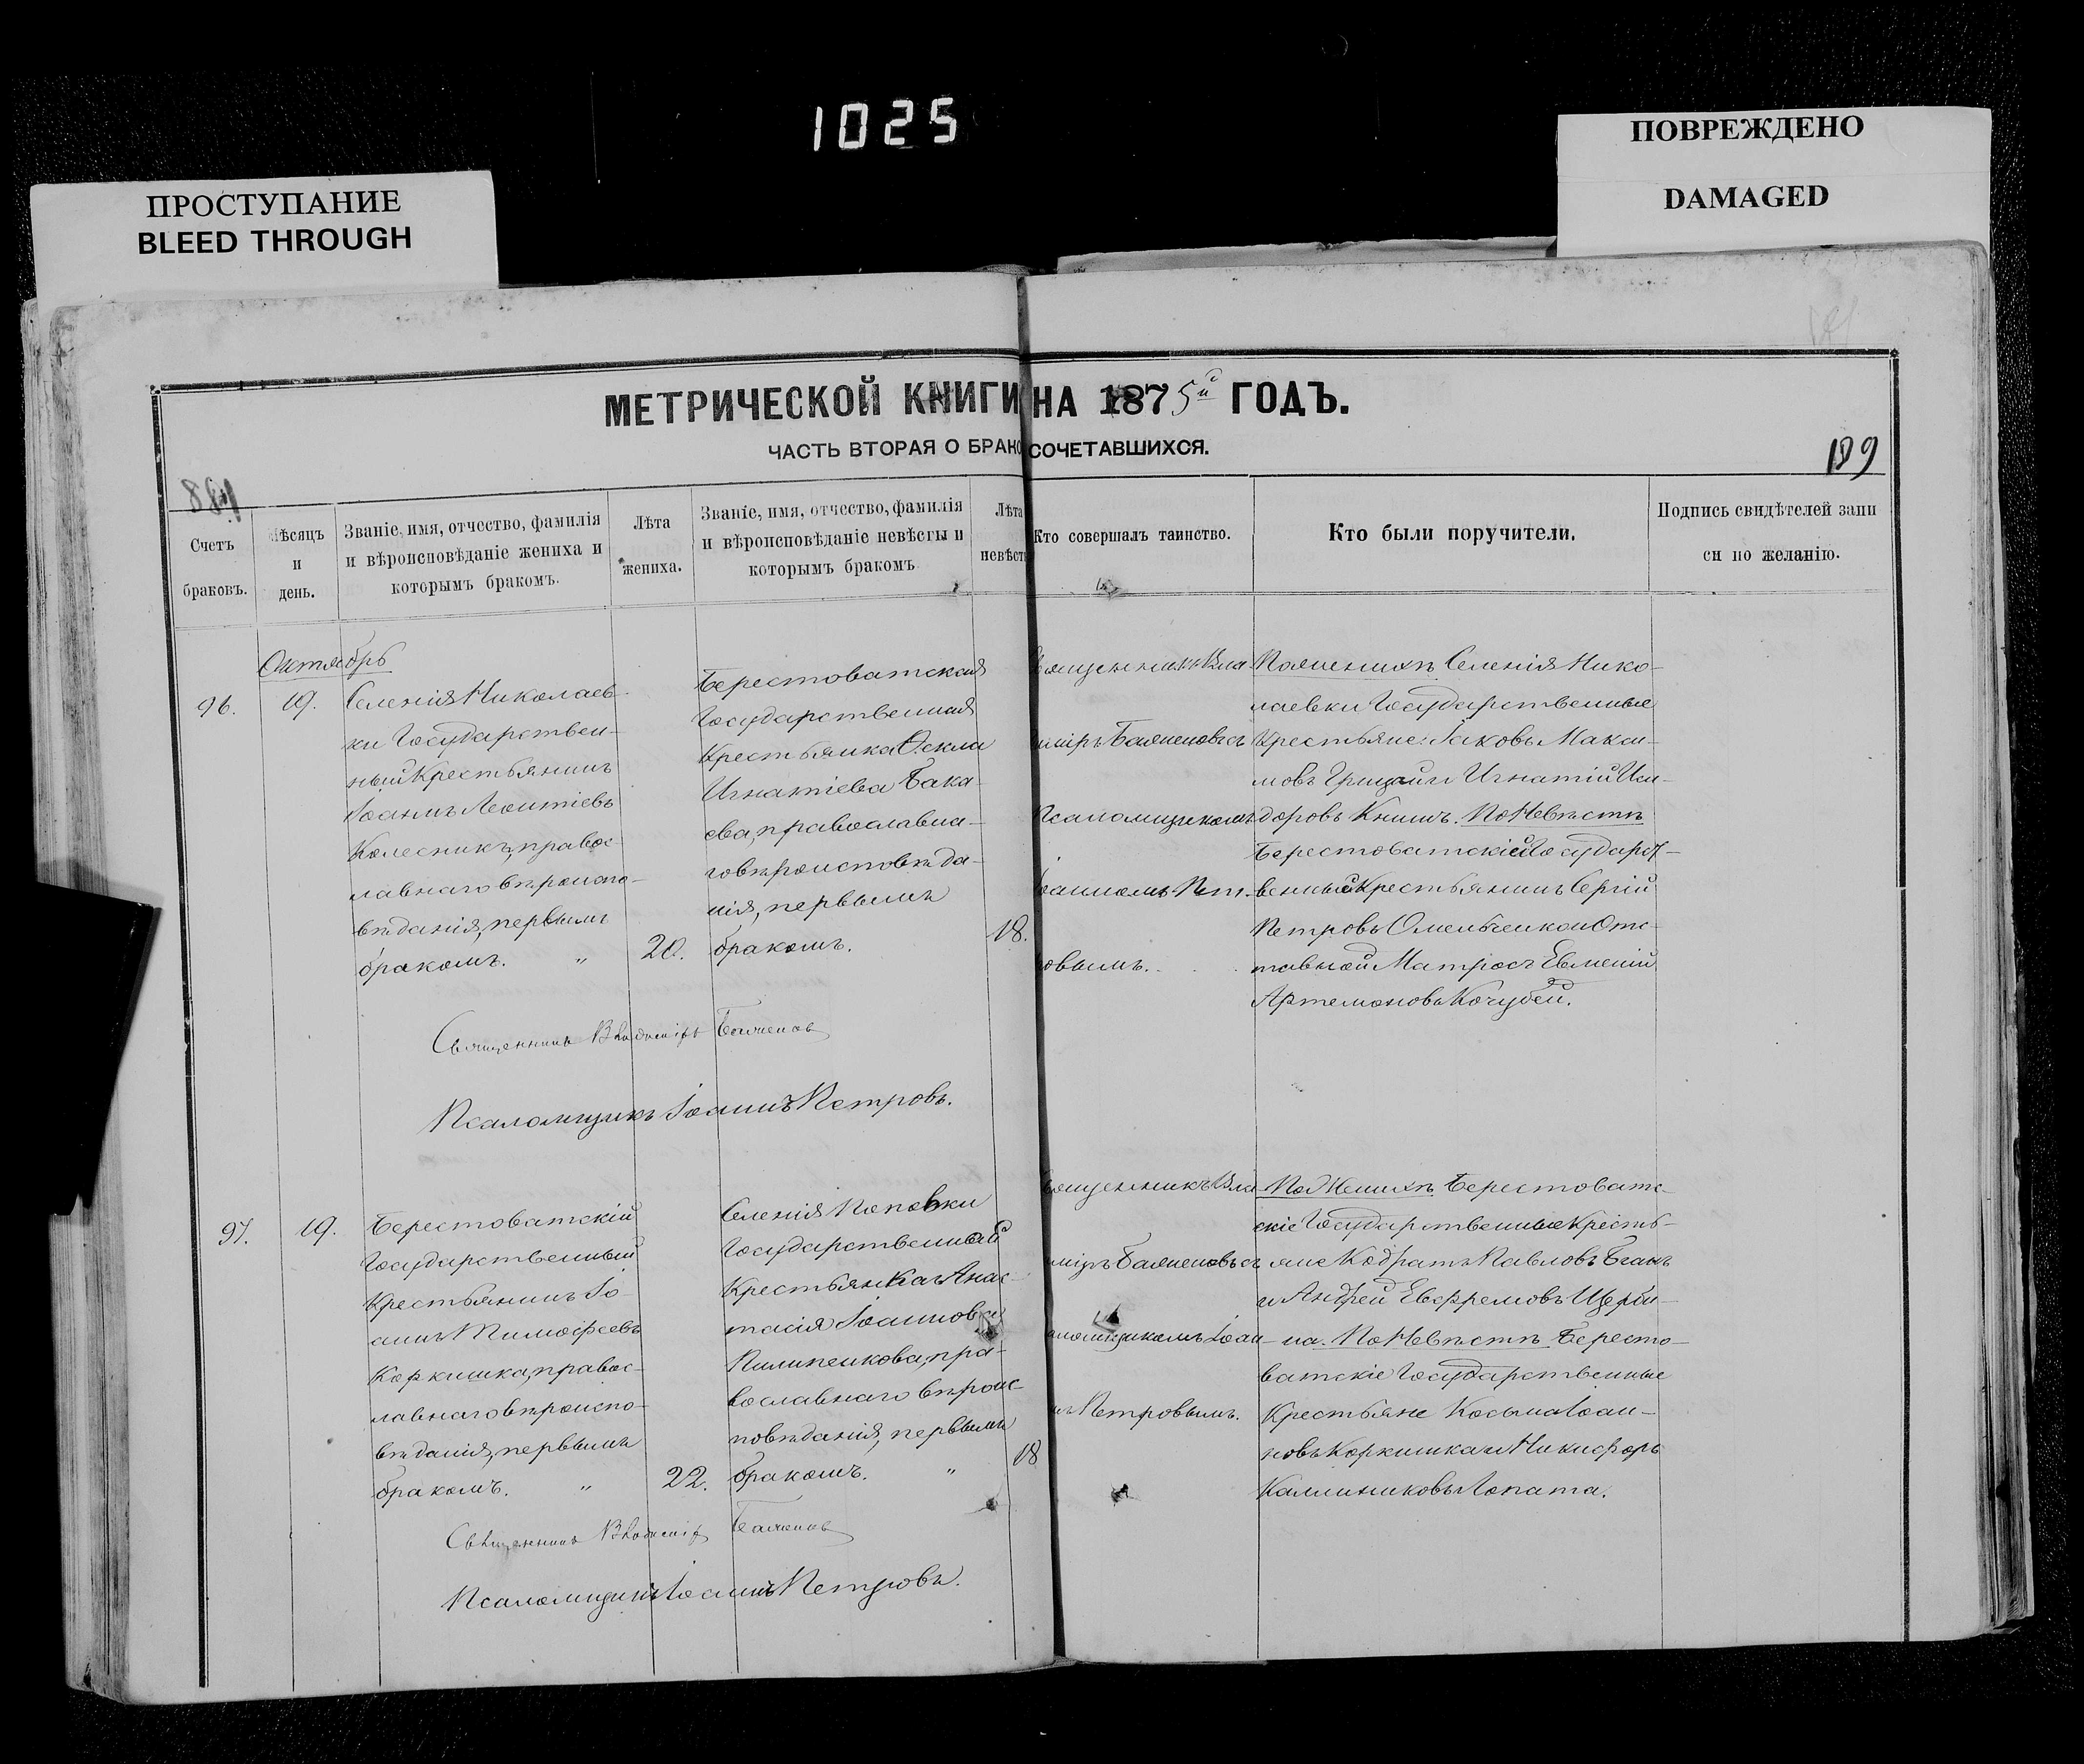 1025
ПРОСТУПАНИЕ
BLEED THROUGH
ПОВРЕЖДЕНО
DAMAGED
МЕТРИЧЕСКОЙ КНИГИ НА 1875й ГОДЪ.
ЧАСТЬ ВТОРАЯ О БРАКОСОЧЕТАВШИХСЯ.
189
Счетъ
браковъ.
Мѣсяцъ
и
день.
Званіе, имя, отчество, фамилія
и вѣроисповѣданіе жениха и
которымъ бракомъ.
Лѣта
жениха.
Званіе, имя, отчество, фамилія
и вѣроисповѣданіе невѣсты и
которымъ бракомъ
Лѣта
невѣст
Кто совершалъ таинство.
Кто были поручители.
Подпись свидѣтелей запи
си по желанію.
Октябрь
96.
19.
Селенія Николаев-
ки Государствен-
ный Крестьянинъ
Іоаннъ Леонтіевъ
Колесникъ, правос-
лавнаго вѣроиспо-
вѣданія, первымъ
бракомъ. "
20.
Берестоватская
Государственная
Крестьянка Ѳекла
Игнатіева Бака-
ева, православна-
го вѣроисповѣда-
нія, первымъ
бракомъ.
18.
Священникъ Вла-
миръ Баженовъ съ
Псаломщикомъ
Іоанномъ Пет-
ровымъ.
По женихѣ Селенія Нико-
лаевки Государственные
Крестьяне: Іаковъ Макси-
мовъ Грицай и Игнатій Иси-
доровъ Книшъ. По Невѣстѣ
Берестоватскій Государст-
венный Крестьянинъ Сергій
Петровъ Омельченко и Отс-
тавной Матросъ Евменій
Артемоновъ Кочубей.
Священникъ Владиміръ Баженовъ
Псаломщикъ Іоаннъ Петровъ.
97.
19.
Берестоватскій
Государственный
Крестьянинъ Іо-
аннъ Тимофеевъ
Коркишка, правос-
лавнаго вѣроиспо-
вѣданія, первымъ
бракомъ. "
22.
Селенія Поповки
Государственная
Крестьянка Анас-
тасія Іоаннова
Пилипенкова, пра-
вославнаго вѣроис-
повѣданія, первымъ
бракомъ. "
18
Священникъ Вла-
миръ Баженовъ съ
аломщикомъ Іоан-
нъ Петровымъ.
По Женихѣ Берестоват-
скіе Государственные Кресть-
яне Кодратъ Павловъ Беганъ
и Андрей Евфремовъ Щерби-
на. По Невѣстѣ Бересто-
ватскіе Государственные
Крестьяне Косьма Іоан-
новъ Коркишка и Никифоръ
Каллиниковъ Лопата.
Священникъ Владиміръ Баженовъ
Псаломщикъ Іоаннъ Петровъ.